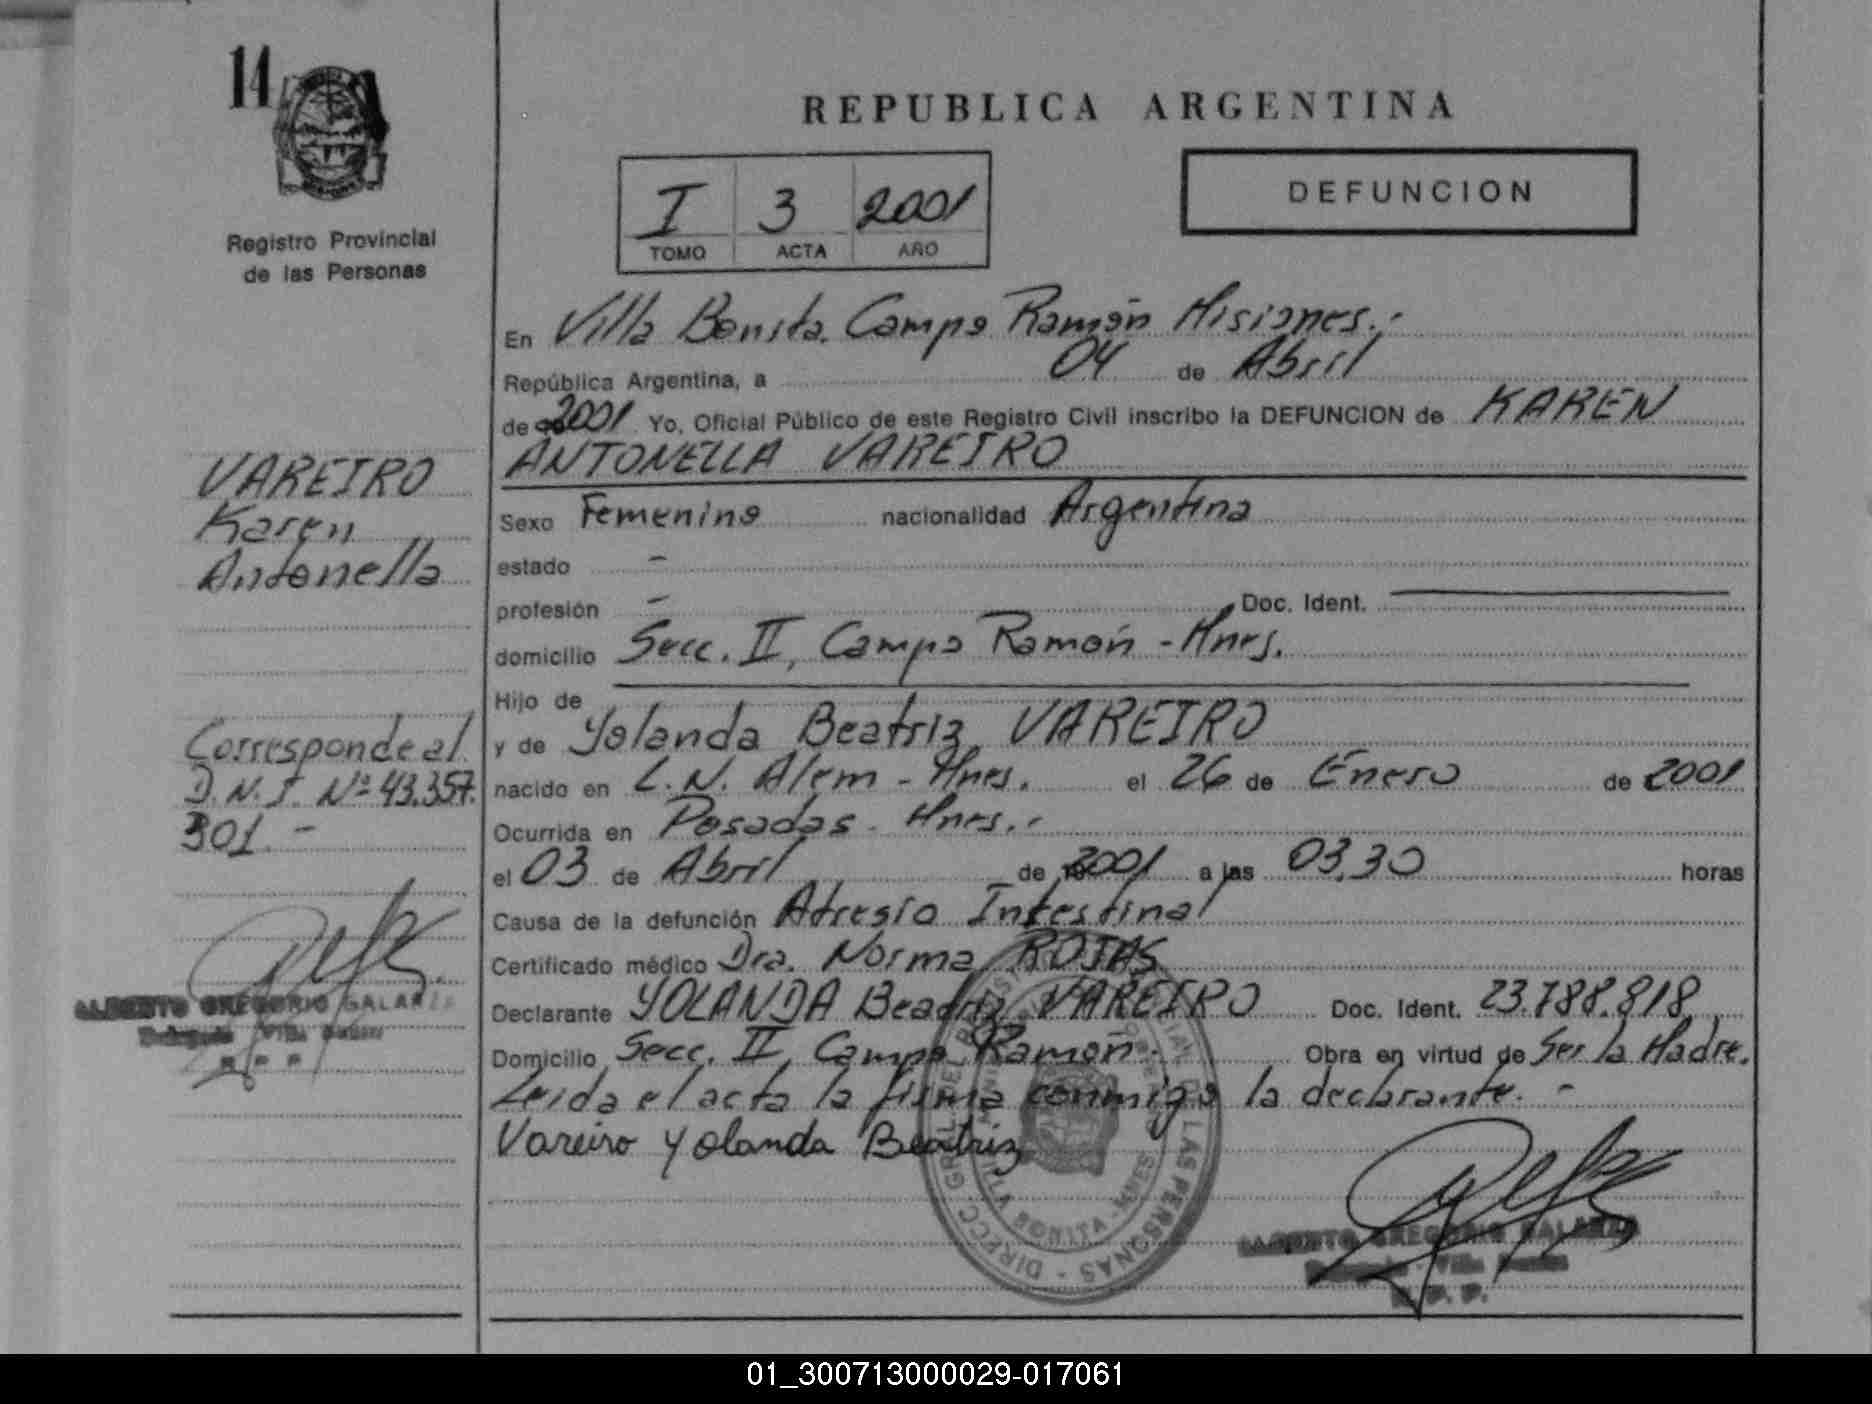 14
Registro Provincial
de las Personas
VAREIRO
Karen
Antonella
Corresponde al
D.N.I. Nº 43.357.
301.-
ALBERTO GREGORIO GALARZA
REPUBLICA ARGENTINA
I 3 2001
TOMO ACTA AÑO
DEFUNCION
En Villa Bonita. Campo Ramón Misiones.-
República Argentina, a 04 de Abril
de 2001 Yo, Oficial Público de este Registro Civil inscribo la DEFUNCION de KAREN
ANTONELLA VAREIRO
Sexo Femenino nacionalidad Argentina
estado -
profesión - Doc. Ident.
domicilio Secc. II, Campo Ramón - Mnes.
Hijo de
y de Yolanda Beatriz VAREIRO
nacido en L.N. Alem - Mnes. el 26 de Enero de 2001
Ocurrida en Posadas - Mnes..-
el 03 de Abril de 2001 a las 03,30 horas
Causa de la defunción Atresia Intestinal
Certificado médico Dra. Norma ROJAS
Declarante YOLANDA Beatriz VAREIRO Doc. Ident. 23.788.818
Domicilio Secc. II, Campo Ramón- Obra en virtud de Ser la Madre.
Leida el acta la firma conmigo la declarante. -
Vareiro Yolanda Beatriz
DIRECC GRAL DEL REGIST PROVINCIAL DE LAS PERSONAS
VILLA BONITA - MNES
ALBERTO GREGORIO GALARZA
R. P. P.
01_300713000029-017061